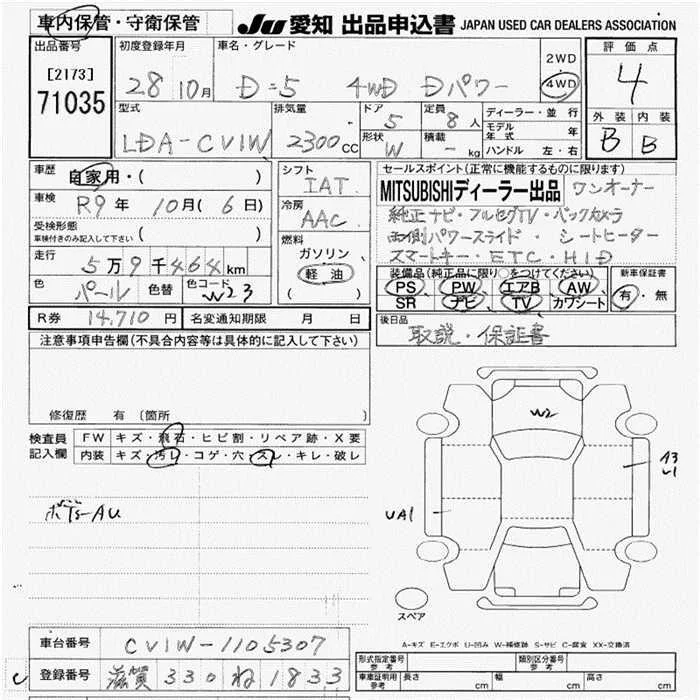 車内保管・守衛保管
JU 愛知 出品申込書 JAPAN USED CAR DEALERS ASSOCIATION
出品番号 初度登録年月 車名・グレード 評価点
[2173] 71035 28 10月 D=5 4WD Dパワー 2WD 4WD 4
型式 排気量 ドア 定員 ディーラー・並行 外装 内装
LDA-CV1W 2300CC 5 8人 モデル年式 年 B B
形状 W 積載 -kg ハンドル 左・右
車歴 自家用・( )
車検 R9年 10月( 6日)
受検形態 車検付きのみ記入して下さい ( )
走行 5万9千464km
色 パール 色替 色コード W23
シフト IAT
冷房 AAC
燃料 ガソリン 軽油 ( )
セールスポイント(正常に機能するものに限ります)
MITSUBISHIディーラー出品 ワンオーナー
純正ナビ・フルセグTV・バックカメラ
両側パワースライド・シートヒーター
スマートキー・ETC・HID
装備品(純正品に限り○をつけてください) 新車保証書
PS PW エアB AW 有・無
SR ナビ TV カワシート
R券 14,710円 名変通知期限 月 日
後日品 取説・保証書
注意事項申告欄(不具合内容等は具体的に記入して下さい)
修復歴 有 (箇所
検査員記入欄 FW キズ・飛石・ヒビ割・リペア跡・X要
内装 キズ・汚レ・コゲ・穴・スレ・キレ・破レ
W2
A3
U1
UA1
スペア
A-キズ E-エクボ U-凹み W-補修跡 S-サビ C-腐食 XX-交換済
車台番号 CV1W-1105307
登録番号 滋賀 330 ね 1833
形式指定番号 参考 類別区分番号 参考
車庫証明用 参考 長さ cm 幅 cm 高さ cm